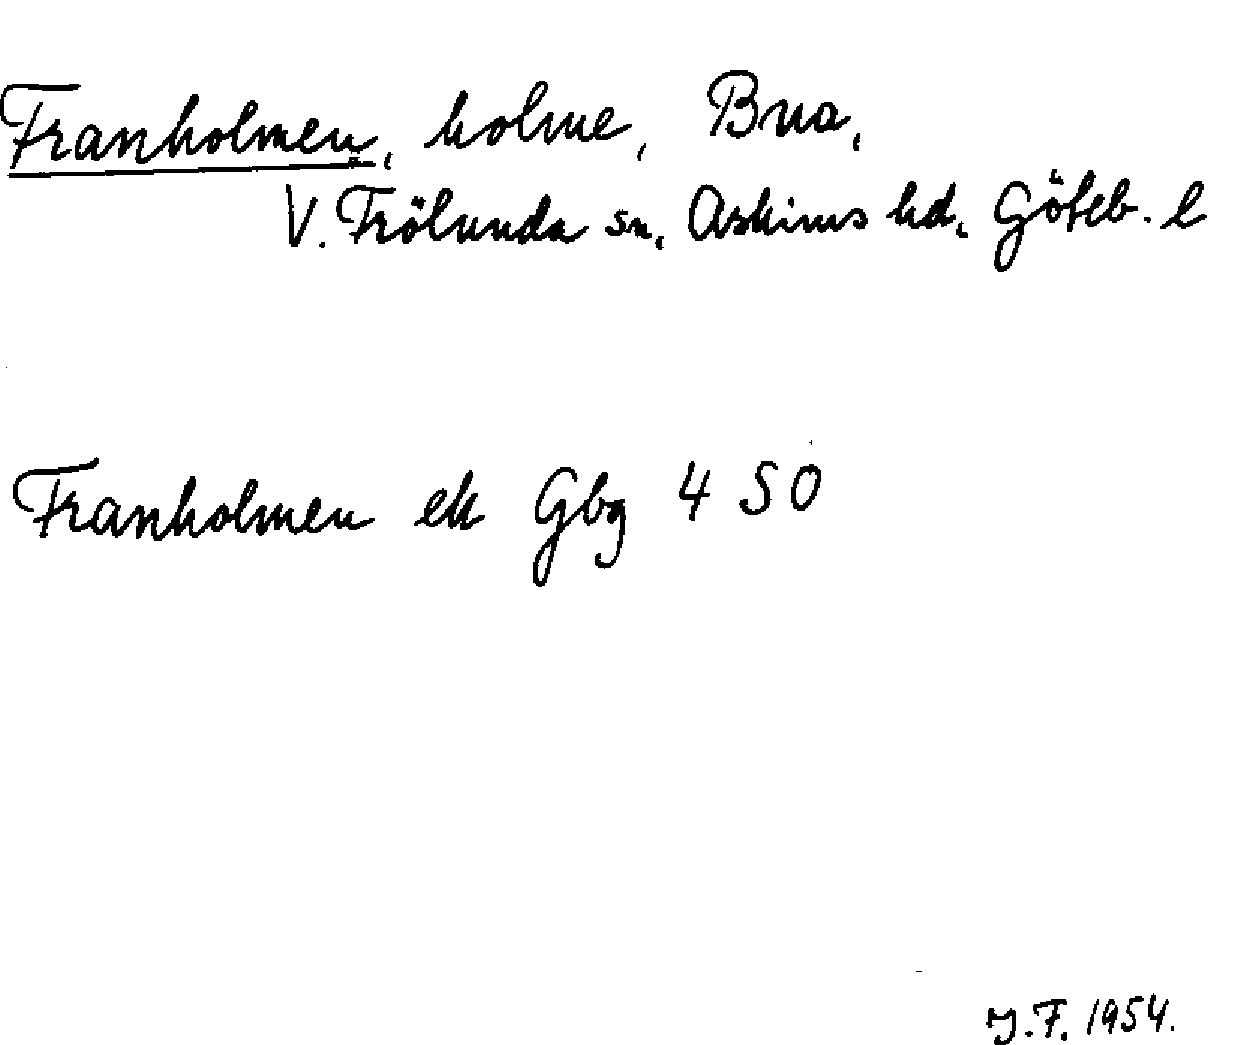 Franholmen, holme, Bua,
V. Frölunda sn, Askims hd, Göteb. l
Franholmen ek Gbg 4 SO
J.F. 1954.